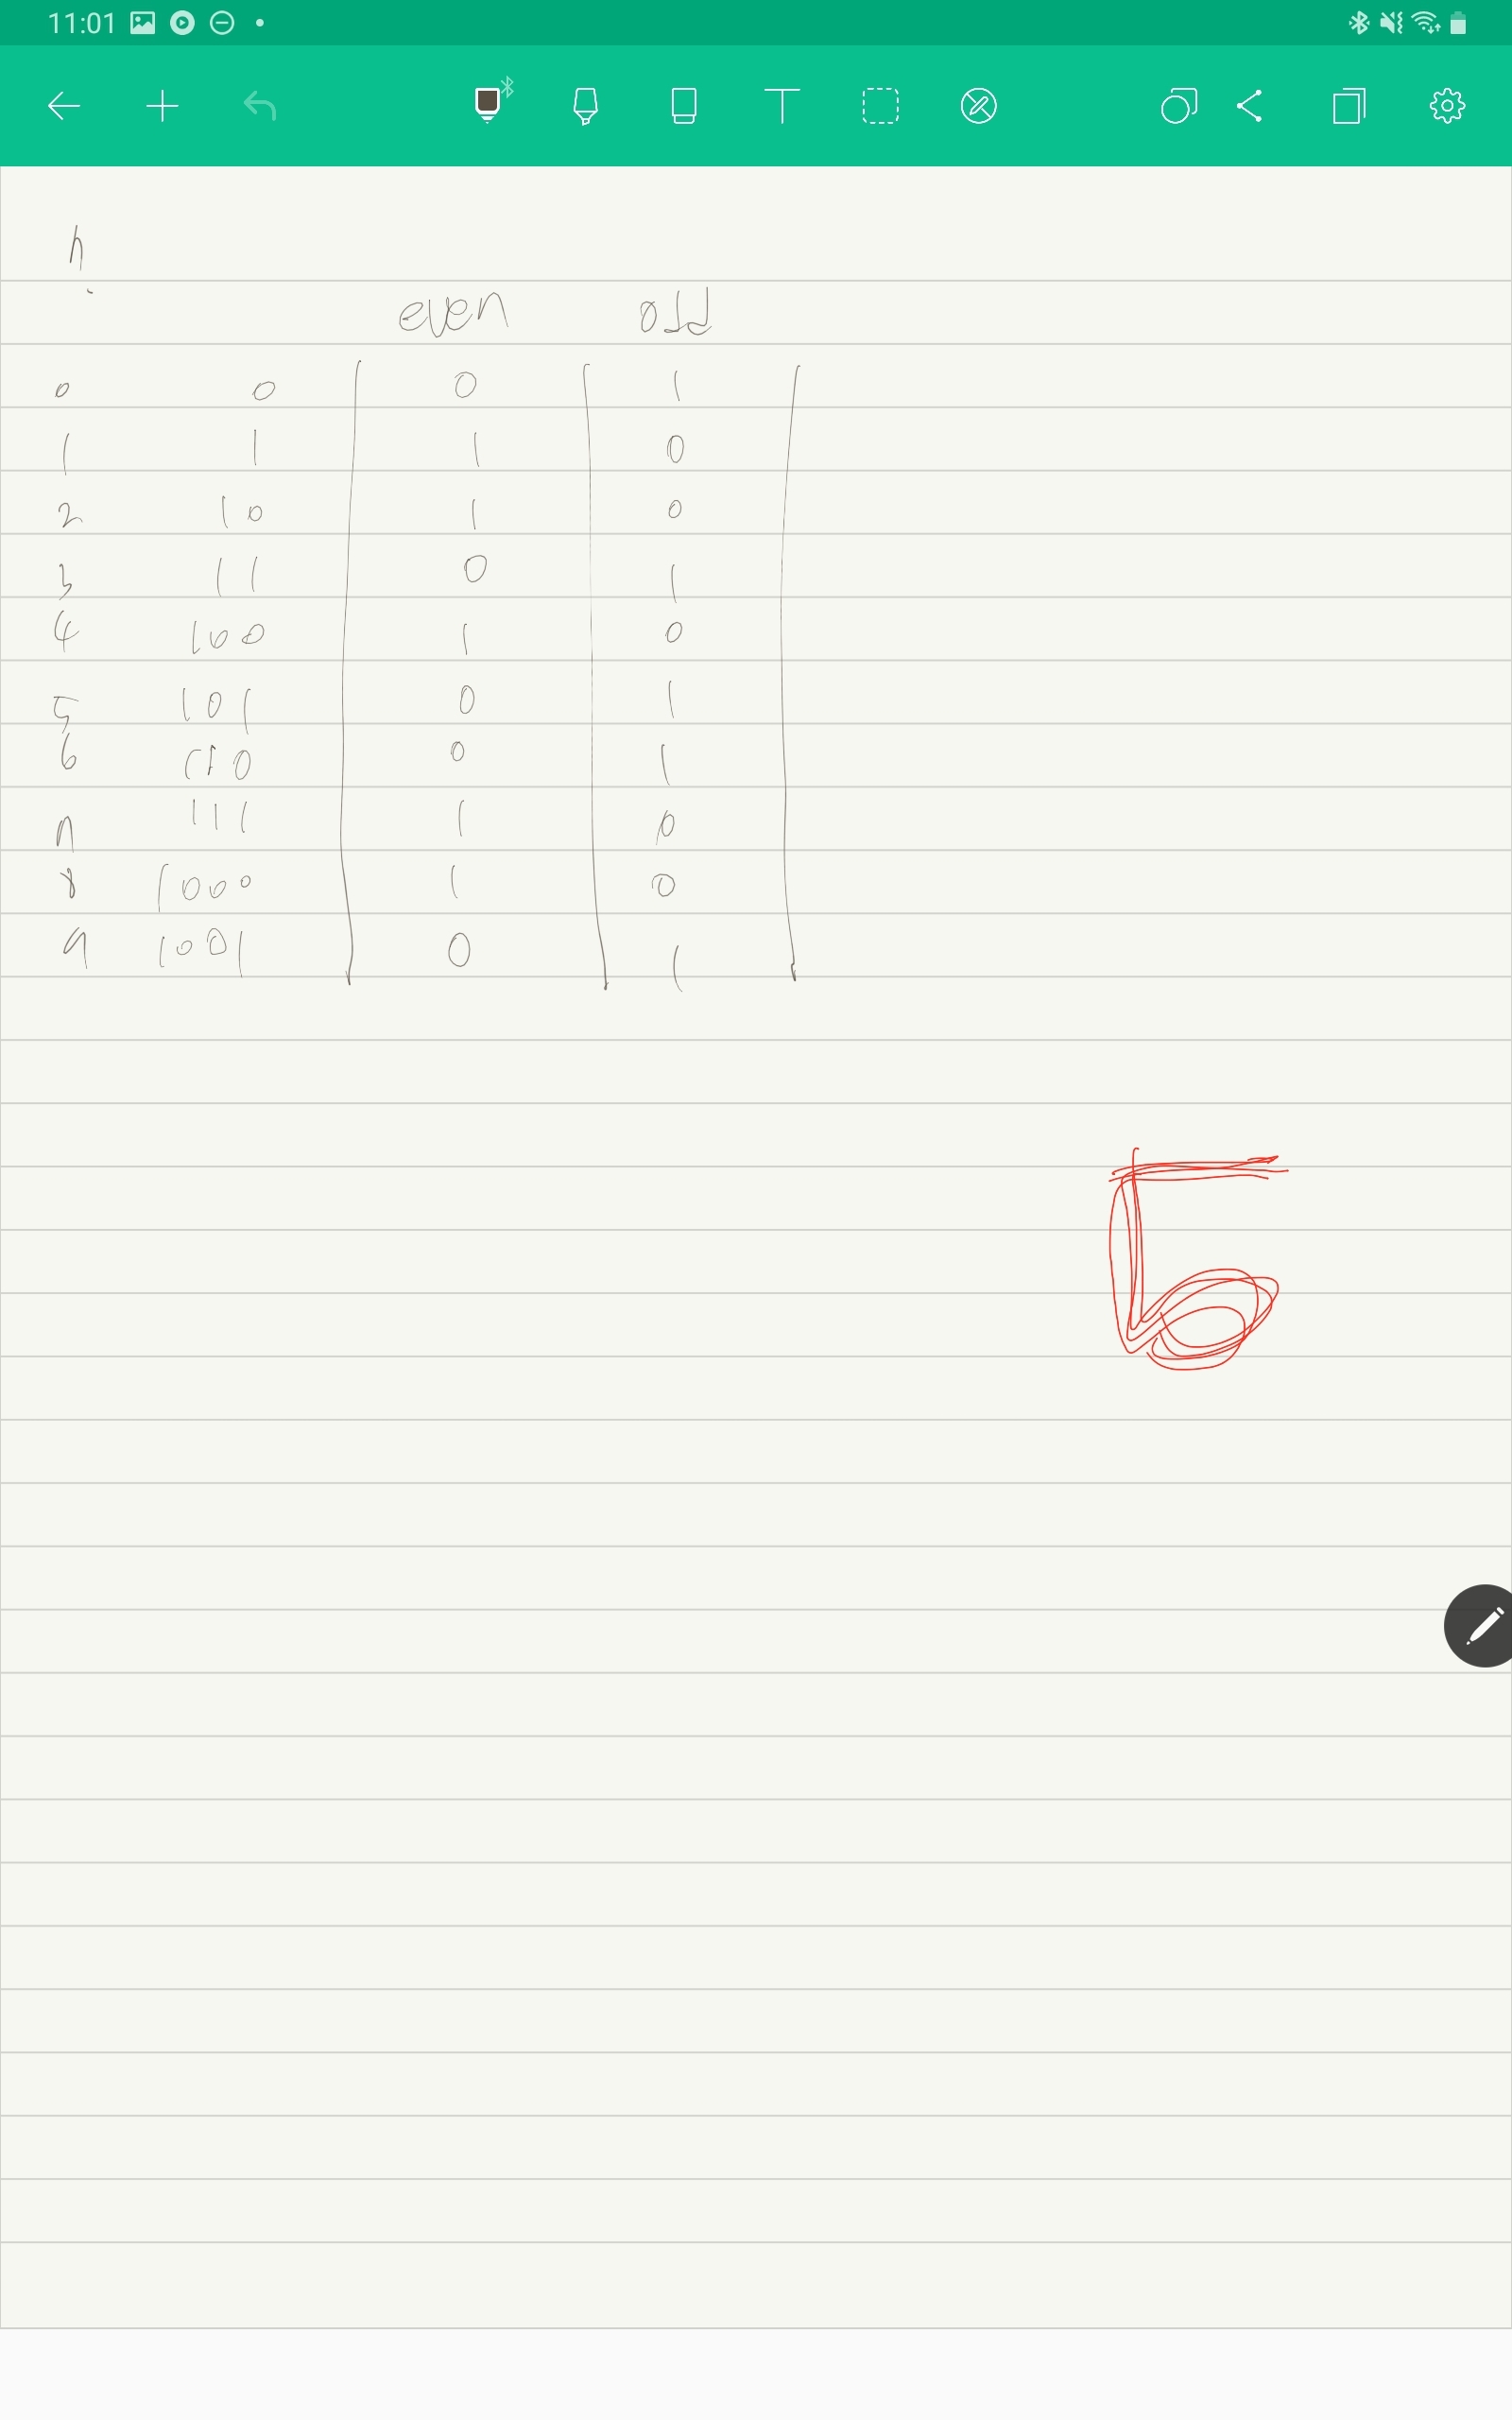 11:01
n
even odd
0 0 0 1
1 1 1 0
2 10 1 0
3 11 0 1
4 100 1 0
5 101 0 1
6 110 0 1
7 111 1 0
8 1000 1 0
9 1001 0 1
5